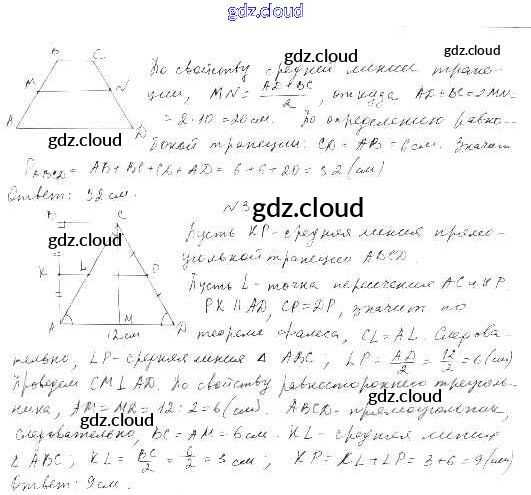 gdz.cloud
B C
gdz.cloud
По свойству средней линии трапе-
M N
ции, MN = AD+BC / 2, откуда AD+BC = 2MN =
gdz.cloud
= 2·10 = 20 см. По определению равно-
A D
gdz.cloud
бокой трапеции: CD = AB = 6 см. Значит
gdz.cloud
P ABCD = AB + BC + CD + AD = 6 + 6 + 20 = 32 (см)
Ответ: 32 см.
N3
gdz.cloud
B C
Пусть KP - средняя линия прямо-
gdz.cloud
угольной трапеции ABCD.
K L P
Пусть L - точка пересечения AC и KP.
gdz.cloud
PK || AD, CP = PD, значит по
A M D
12 см
теореме Фалеса, CL = AL. Следова-
gdz.cloud
тельно, LP - средняя линия Δ ABC; LP = AD/2 = 12/2 = 6 (см)
Проведем CM ⊥ AD. По свойству равностороннего треуголь-
ника, AM = MD = 12 : 2 = 6 (см). ABCD - прямоугольник,
gdz.cloud
следовательно, BC = AM = 6 см. KL - средняя линия
Δ ABC; KL = BC/2 = 6/2 = 3 см; KP = KL + LP = 3 + 6 = 9 (см)
gdz.cloud
Ответ: 9 см.
gdz.cloud